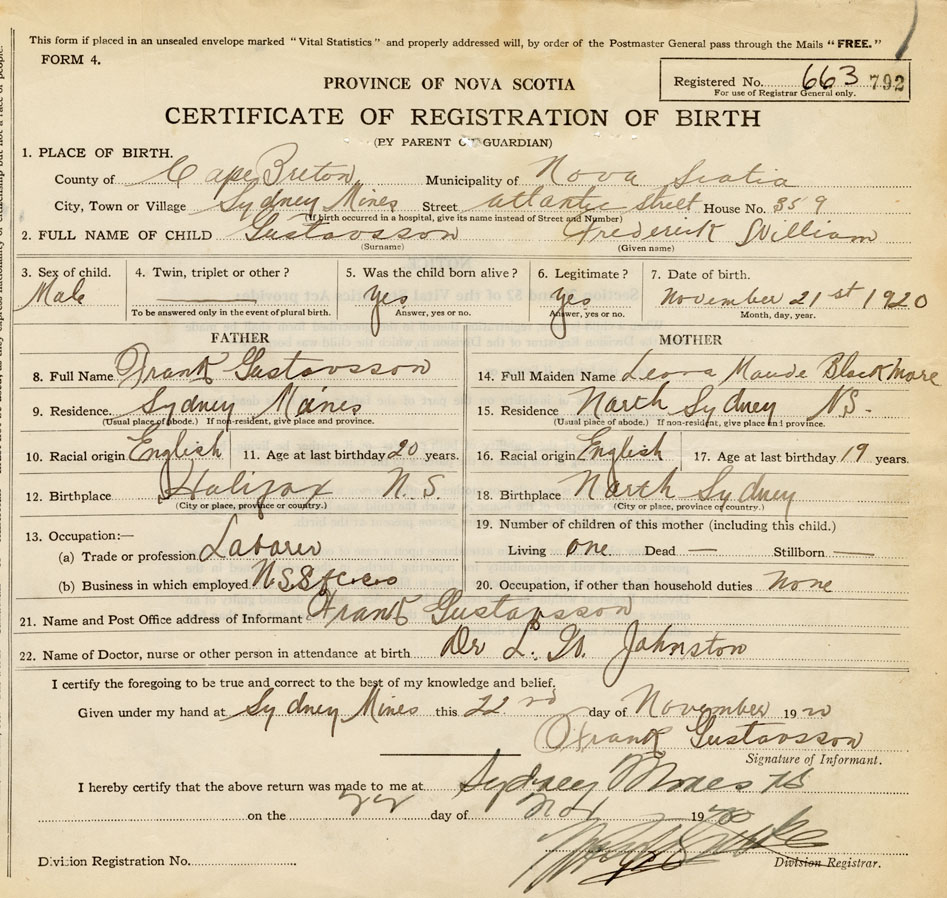 This form if placed in an unsealed envelope marked "Vital Statistics" and properly addressed will, by order of the Postmaster General pass through the Mails "FREE."
FORM 4.
Registered No. 663 792
For use of Registrar General only.
PROVINCE OF NOVA SCOTIA
CERTIFICATE OF REGISTRATION OF BIRTH
(BY PARENT OR GUARDIAN)
1. PLACE OF BIRTH.
County of Cape Breton Municipality of Nova Scotia
City, Town or Village Sydney Mines Street atlantic street House No. 359
(If birth occurred in a hospital, give its name instead of Street and Number)
2. FULL NAME OF CHILD Gustavsson Frederick William
(Surname) (Given name)
3. Sex of child. Male
4. Twin, triplet or other? —
To be answered only in the event of plural birth.
5. Was the child born alive? yes
Answer, yes or no.
6. Legitimate? yes
Answer, yes or no.
7. Date of birth. November 21st 1920
Month, day, year.
FATHER
8. Full Name Frank Gustavsson
9. Residence. Sydney Mines
(Usual place of abode.) If non-resident, give place and province.
10. Racial origin English 11. Age at last birthday 20 years.
12. Birthplace Halifax N.S.
(City or place, province or country.)
13. Occupation:—
(a) Trade or profession Laborer
(b) Business in which employed N.S.S
MOTHER
14. Full Maiden Name Leona Maude Blackmore
15. Residence North Sydney NS.
(Usual place of abode.) If non-resident, give place and province.
16. Racial origin English 17. Age at last birthday 19 years.
18. Birthplace North Sydney
(City or place, province or country.)
19. Number of children of this mother (including this child.)
Living one Dead — Stillborn —
20. Occupation, if other than household duties None
21. Name and Post Office address of Informant Frank Gustavsson
22. Name of Doctor, nurse or other person in attendance at birth Dr L. W. Johnston
I certify the foregoing to be true and correct to the best of my knowledge and belief.
Given under my hand at Sydney Mines this 22nd day of November 1920
Frank Gustavsson
Signature of Informant.
I hereby certify that the above return was made to me at Sydney Mines NS
on the 22 day of Nov 1920
Division Registration No.
Division Registrar.